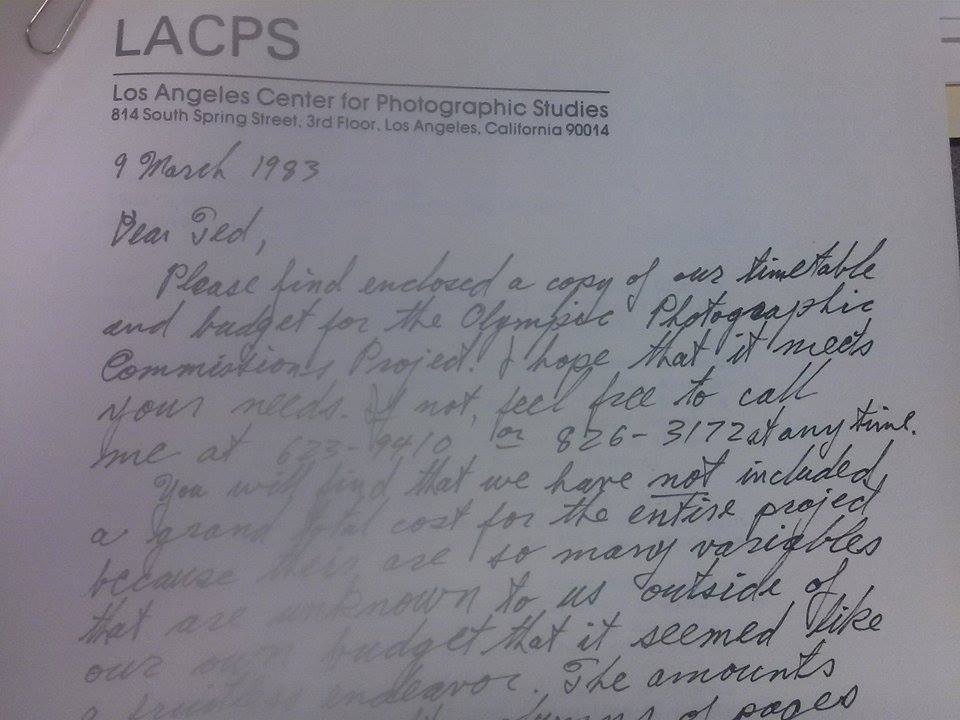 LACPS
Los Angeles Center for Photographic Studies
814 South Spring Street, 3rd Floor, Los Angeles, California 90014
9 March 1983
Dear Ted,
Please find enclosed a copy of our timetable
and budget for the Olympic Photographic
Commissions Project. I hope that it meets
your needs. If not, feel free to call
me at 673-9410 or 826-3172 at any time.
You will find that we have not included
a grand total cost for the entire project
because there are so many variables
that are unknown to us outside of
our own budget that it seemed like
a fruitless endeavor. The amounts
columns of pages